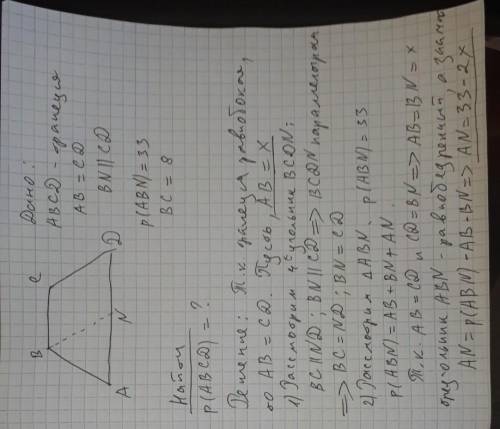 Дано:
ABCD - трапеция
AB = CD
BN || CD
P(ABN) = 33
BC = 8
B
C
A
N
D
Найти
P(ABCD) = ?
Решение: Т.к. трапеция равнобокая,
то AB = CD. Пусть, AB = x
1) Рассмотрим 4-угольник BCDN:
BC || ND; BN || CD => BCDN параллелограм
=> BC = ND; BN = CD
2) Рассмотрим △ABN. P(ABN) = 33
P(ABN) = AB + BN + AN.
Т.к. AB = CD и CD = BN => AB = BN = x
ABN - равнобедренный, а
AN = P(ABN) - AB - BN => AN = 33 - 2x